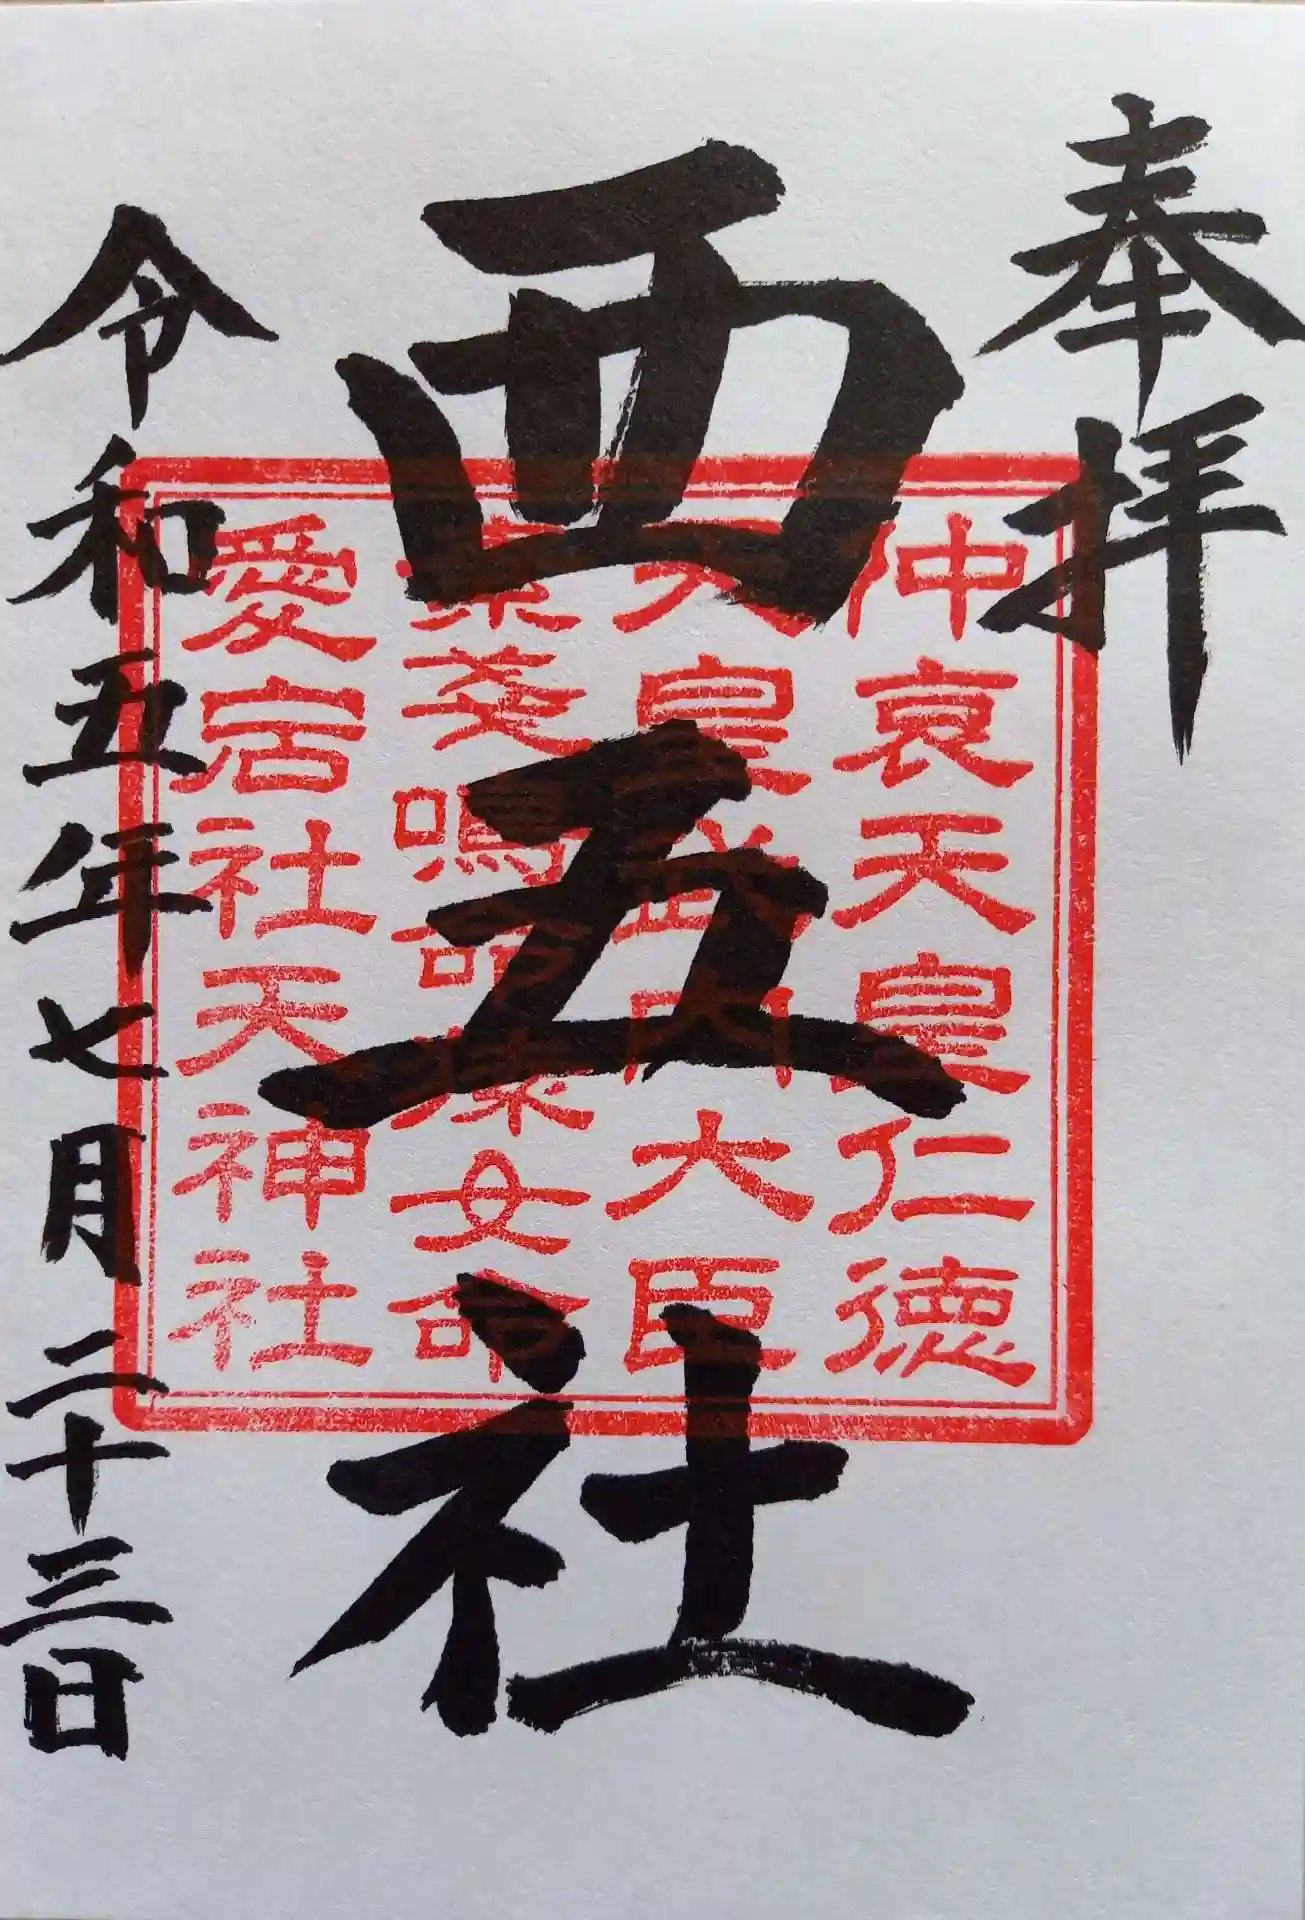 奉拝
西五社
仲哀天皇仁徳
天皇武内大臣
素戔嗚命猿女命
愛宕社天神社
令和五年七月二十三日